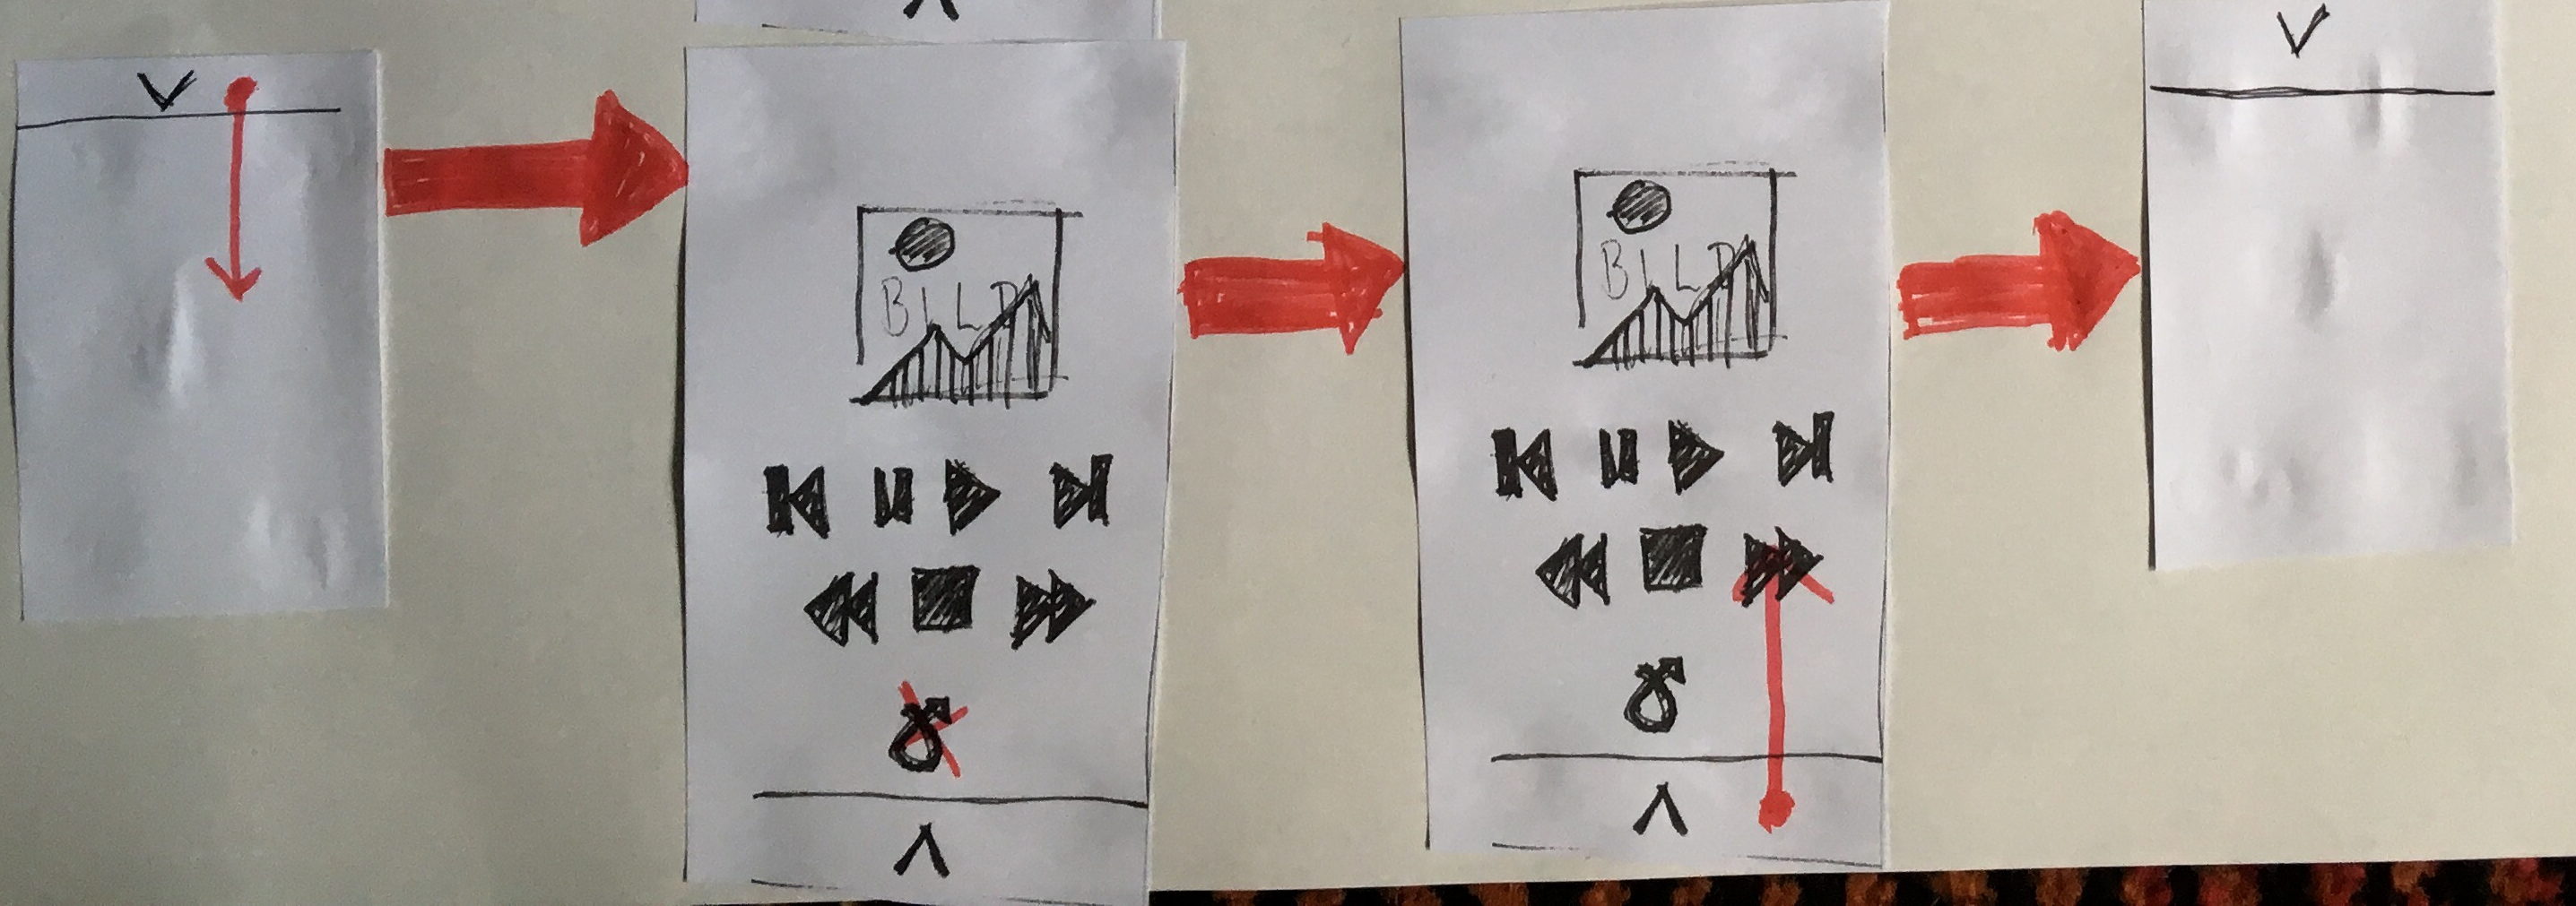 BILD
BILD